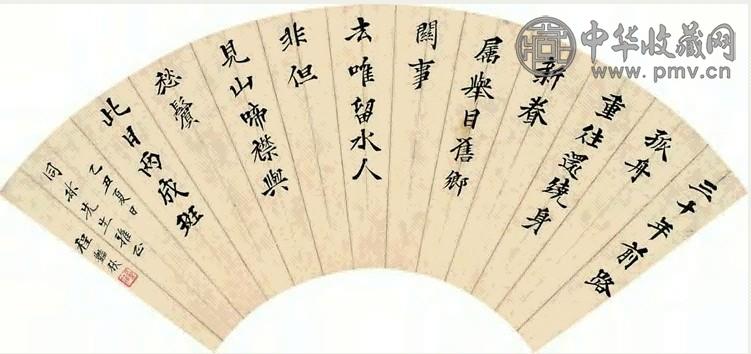 三十年前路
孤舟
重往還繞身
新眷
属舉目舊鄉
關事
去唯留水人
非但
見山啼襟與
愁鬢
此日两成斑
乙丑夏日
先生雅正
程
中华收藏网
www.pmv.cn